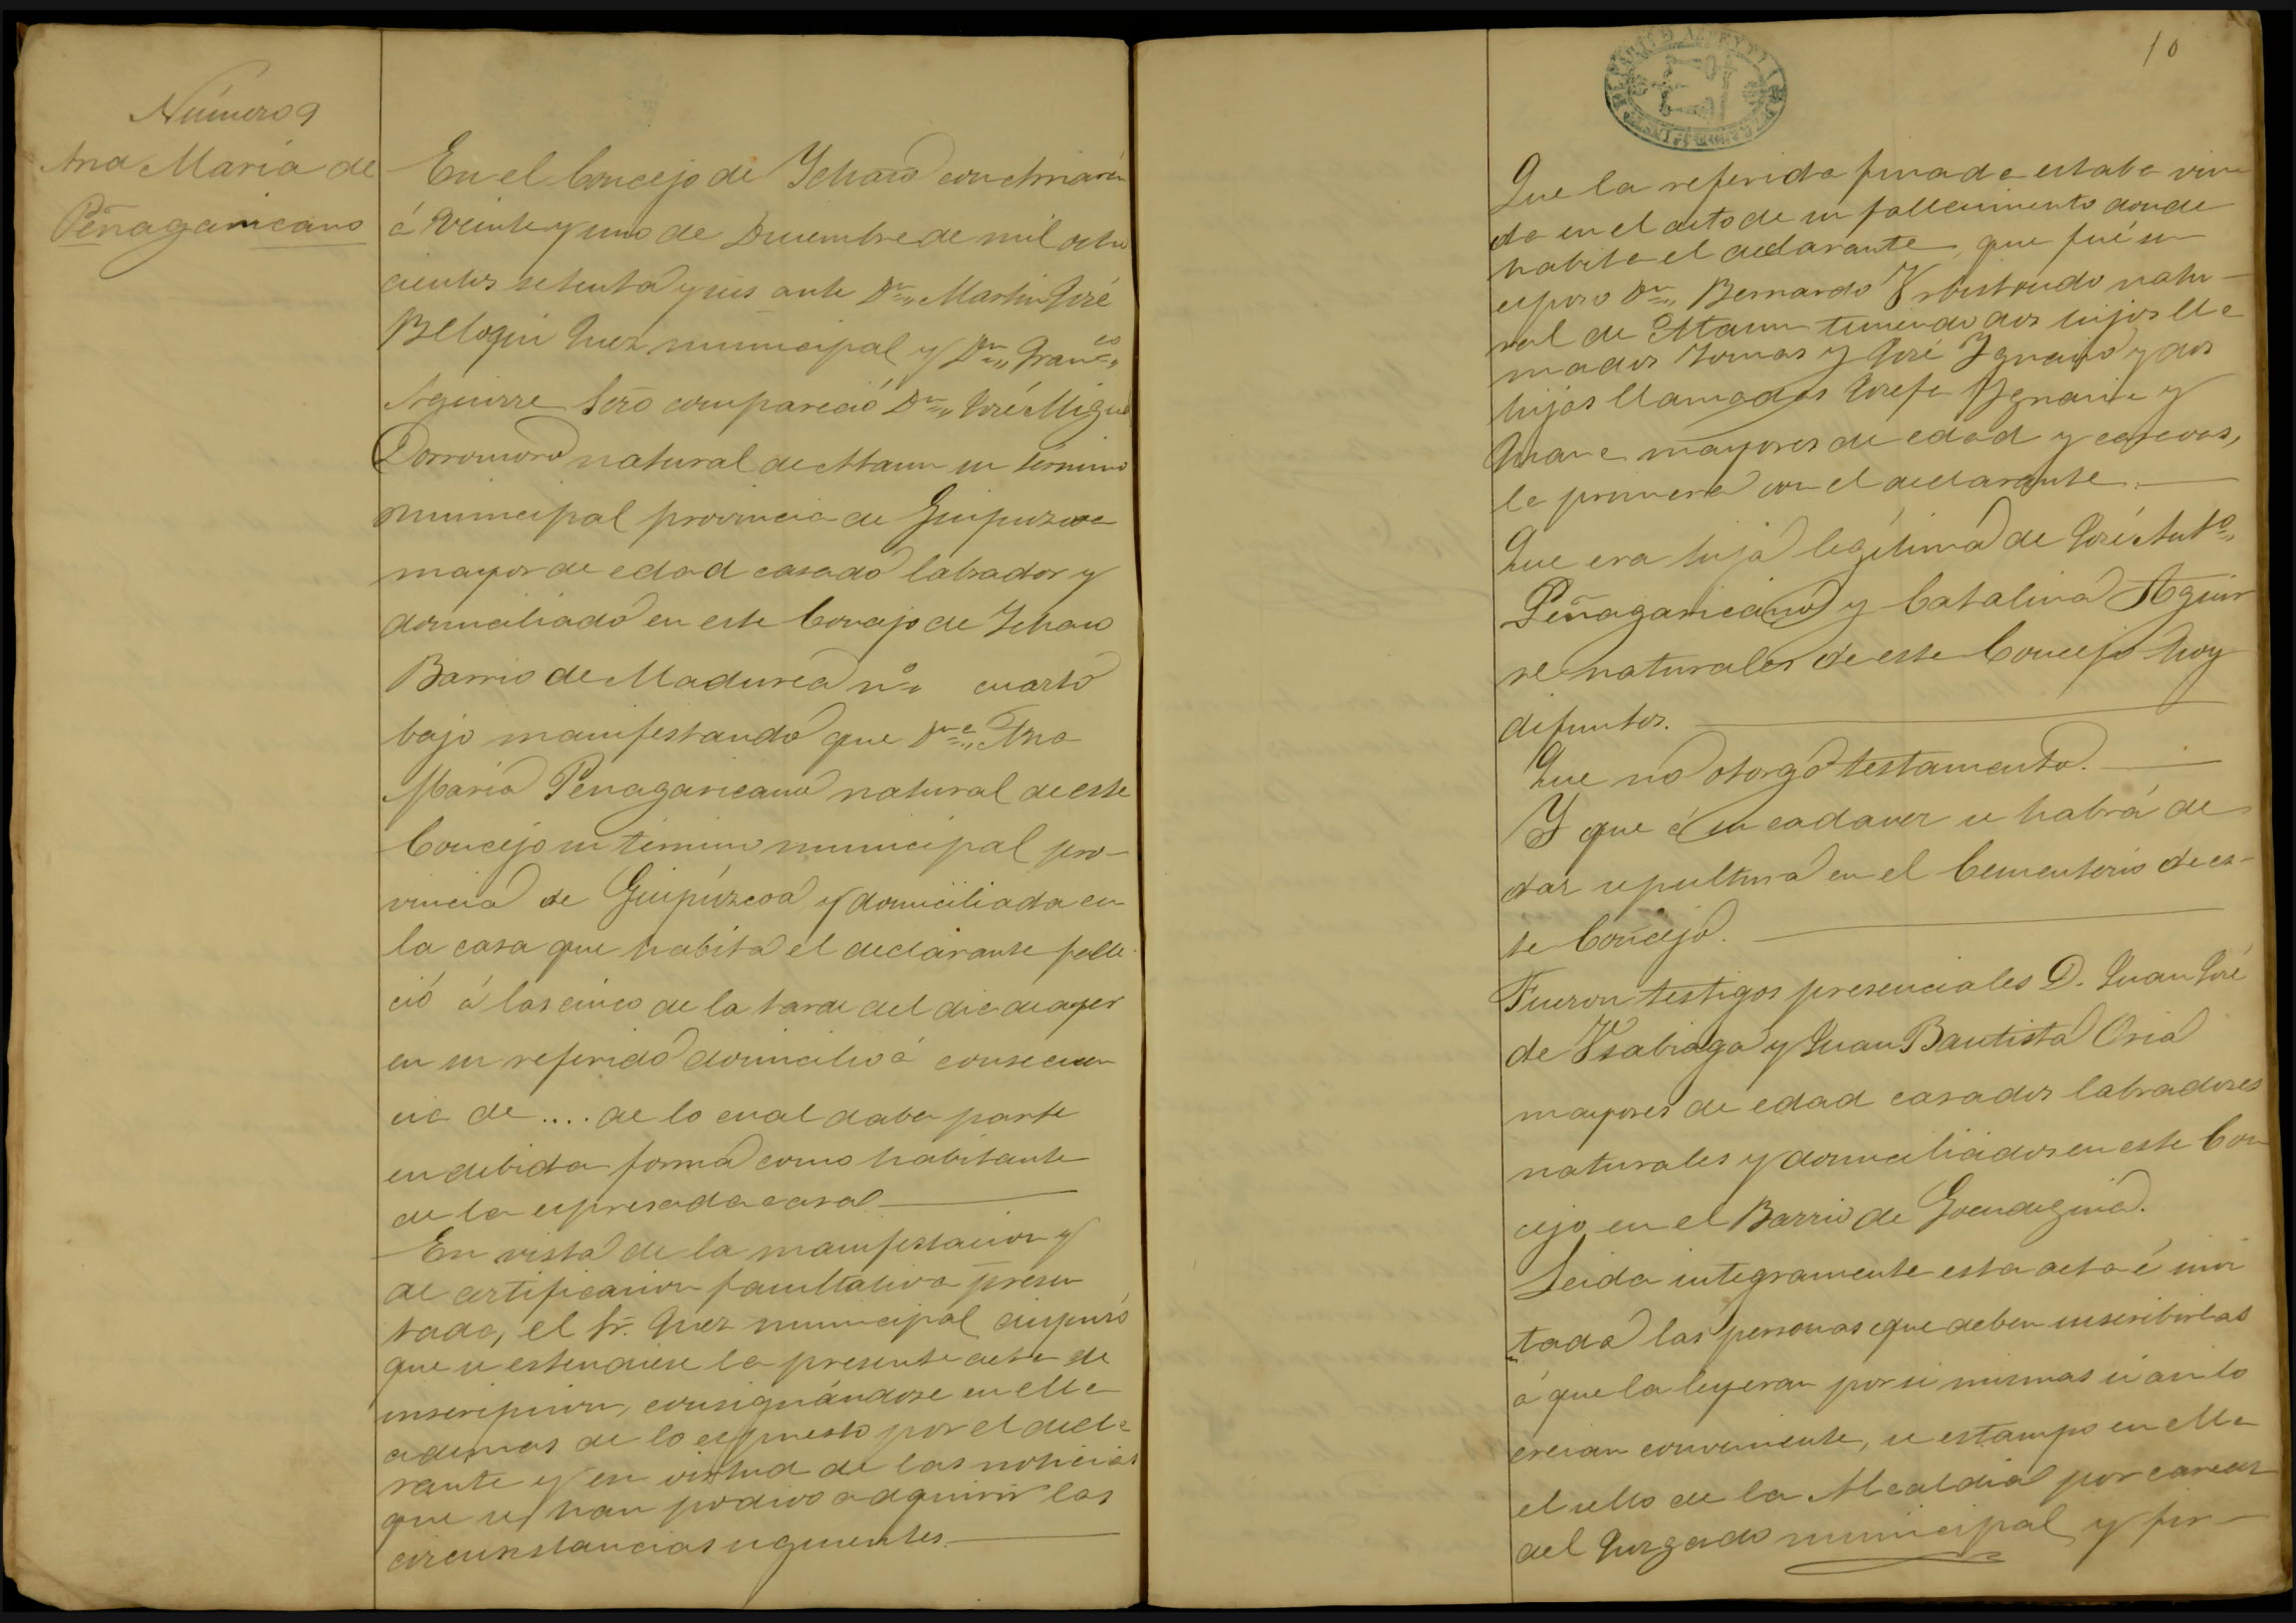 Número 9
Ana Maria de
Peñagaricano
En el Concejo de Ichaso con Arriarán
á veinte y uno de Diciembre de mil ocho
cientos setenta y seis ante Dn. Martin José
Belloqui Juez municipal y Dn. Franco.
Aguirre Srio compareció Dn. José Miguel
Dorronsoro natural de Ataun su término
municipal provincia de Guipuzcoa
mayor de edad casado labrador y
domiciliado en este Concejo de Ichaso
Barrio de no. cuarto
bajo manifestando que Dña. Ana
Maria Penagaricano natural de este
Concejo su término municipal pro-
vincia de Guipúzcoa y domiciliada en
la casa que habita el declarante falle-
ció á las cinco de la tarde del dia de ayer
en su referido domicilio á consecuen
cia de .... de lo cual daba parte
en debida forma como habitante
de la espresada casa
En vista de la manifestacion y
de certificacion facultativa presen
tada, el Sr. Juez municipal dispuso
que se estendiese la presente acta de
inscripcion, consignándose en ella
ademas de lo espuesto por el decla
rante y en virtud de las noticias
que se han podido adquirir las
circunstancias siguientes.
10
Que la referida finada estaba viu
da en el acto de su fallecimiento donde
habita el declarante, que fué su
esposo Dn. Bernardo natu-
ral de Ataun teniendo dos hijos lla
mados Tomas y José Ygnacio y dos
hijas llamadas Josefa Ygnacia y
Juana mayores de edad y casados,
la primera con el declarante.
Que era hija legítima de José Anto.
Peñagaricano y Catalina Aguir
re naturales de este Concejo hoy
difuntos.
Que no otorgó testamento.
Y que á su cadaver se habrá de
dar sepultura en el Cementerio de es-
te Concejo.
Fueron testigos presenciales D. Juan José
de Usabiaga y Juan Bautista Oria
mayores de edad casados labradores
naturales y domiciliados en este Con
cejo, en el Barrio de
Leida integramente esta acta é invi
tado las personas que deben suscribirlas
á que la leyeran por si mismas si asi lo
creian conveniente, se estampo en ella
el sello de la Alcaldia por carecer
del Juzgado municipal y fir-